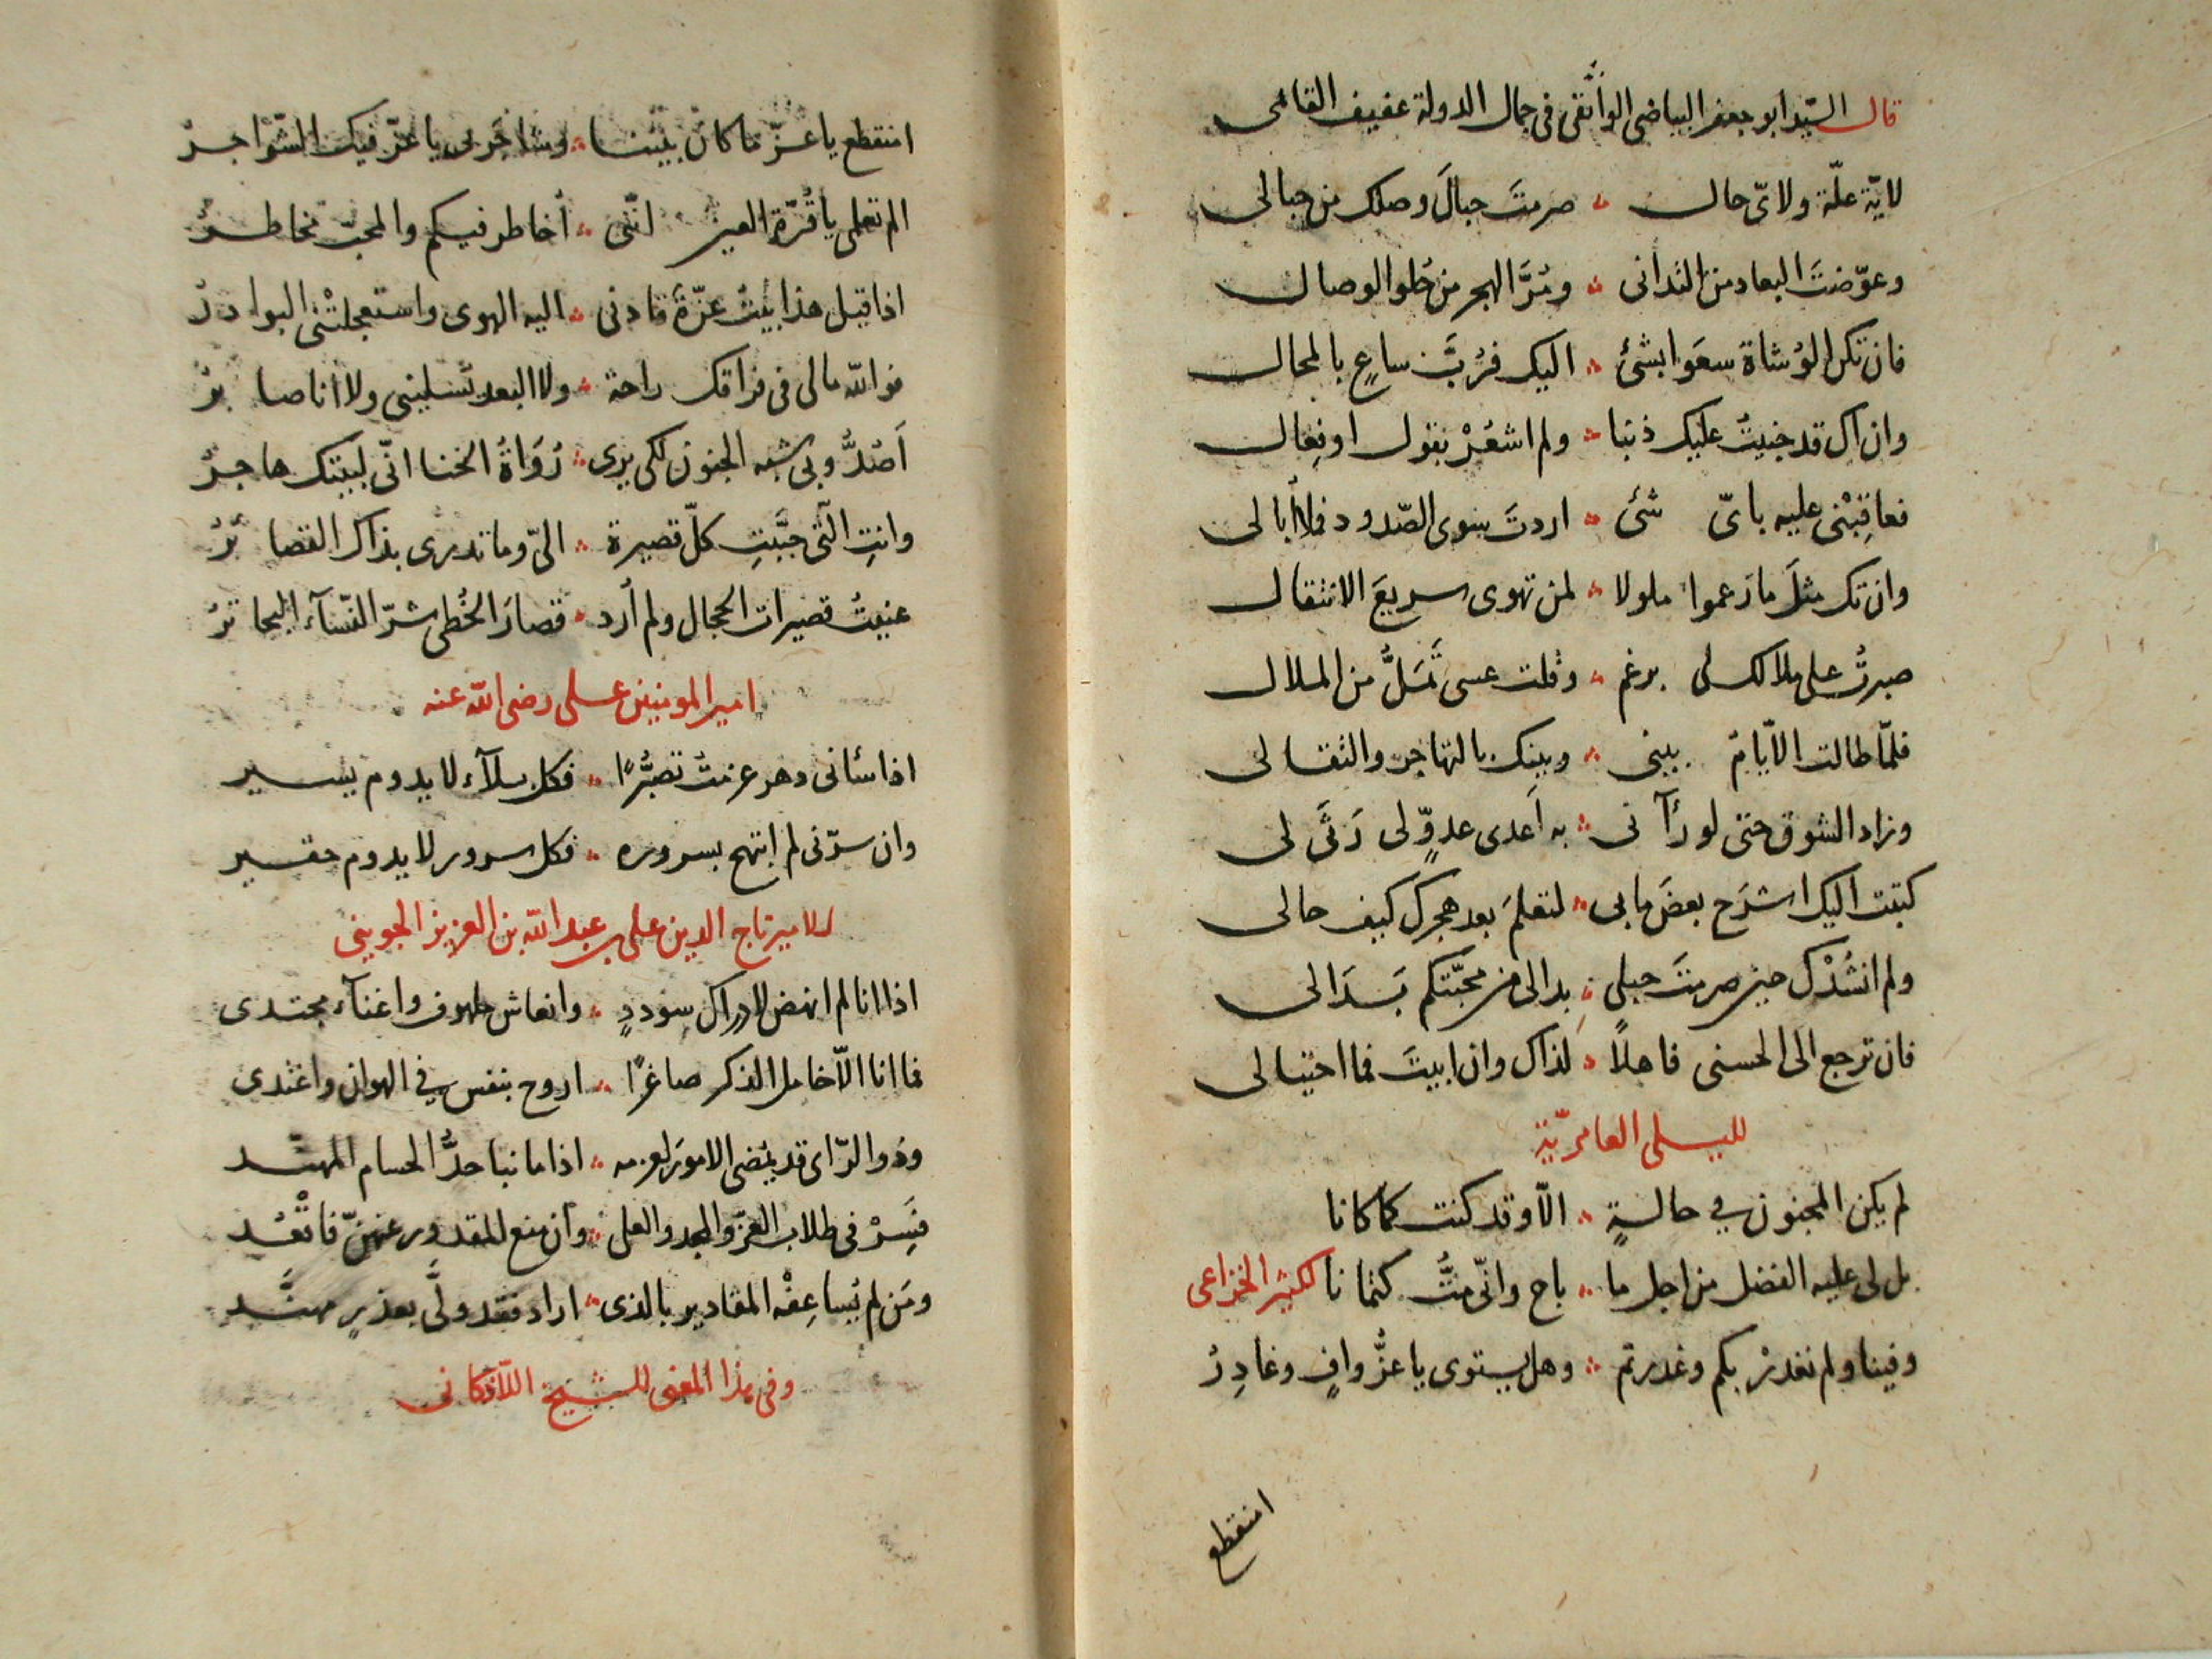 قال السّيد ابو جعفر البياضى الواثقى فى جمال الدولة عفيف القائمى
لايّة علّة ولاىّ حال ؞ صرمتَ حبالَ وصلك من حبالى
وعوّضتَ البعاد من التدانى ؞ ومُرَّ الهجر من حُلو الوصال
فان تكن الوُشاة سعَوا بشئ ؞ اليك فرُبَّ ساعٍ بالمحال
وان اك قد جنيتُ عليك ذنبا ؞ ولم اشعُرْ بقول او فِعال
فعاقِبْنى عليه باىّ شئ ؞ اردتَ سوى الصّدود فلا أبالى
وان تك مثلَ ما زعموا ملولا ؞ لمن تهوى سريعَ الانتقال
صبرتُ على ملالك لى برغم ؞ وقلت عسى تَمَلُّ من الملال
فلمّا طالت الأيّامُ بينى ؞ وبينك بالتهاجر والتقالى
وزاد الشوق حتى لو رآنى ؞ به اَعدى عدوٍّ لى رَثَى لى
كتبت اليك اشرَح بعضَ مابى ؞ لتعلمَ بعد هجرك كيف حالى
ولم انشُدْك حين صرمتَ حبلى ؞ بدا لى من محبّتكم بَدَا لى
فان ترجع الى الحسنى فاهلاً ؞ لذاك وان ابيتَ فما احتيالى
لليلى العامريّة
لم يكن المجنون في حالةٍ ؞ الّا وقد كنت كما كانا
بل لى عليه الفضل من اجل ما ؞ باح وانّى مُتُّ كتمانا لكثير الخزاعى
وفينا ولم نغدرْ بكم وغدرتم ؞ وهل يستوى يا عزُّ وافٍ وغادِرُ
انقطع
انقطع يا عزّ ما كان بيننا ؞ وشاجَرنى يا عزّ فيك الشّواجرُ
الم تعلمى يا قُرّة العين انّنى ؞ أخاطر فيكم والمحبّ مخاطرُ
اذا قيل هذا بيتُ عزّةَ قادنى ؞ اليه الهوى واستعجلتْنى البوادرُ
فوالله مالى فى فراقك راحة ؞ ولا البعد تسلينى ولا انا صابرُ
اَصُدُّ وبى شبه الجنون لكى يرى ؞ رُوَاةُ الخنا انّى لبيتك هاجرُ
وانتِ الّتى حبَّبتِ كلّ قصيرة ؞ الىّ وما تدرى بذاك القصائرُ
عنيتُ قصيرات الحجال ولم أرد ؞ قصارَ الخُطى شرّ النّسآء البحاترُ
امير المومنين على رضى الله عنه
اذا سائنى دهر عزمتُ تصبُّرًا ؞ فكل بلآء لا يدوم يسير
وان سرّنى لم ابتهج بسروره ؞ فكل سرور لا يدوم حقير
للامير تاج الدين على بن عبد الله بن العزيز الجوينى
اذا انا لم انهض لادراك سوددٍ ؞ وانعاش ملهوف واغنآء مجتدى
فما انا الّا خامل الذكر صاغرًا ؞ اروح بنفس في الهوان واغتدى
وذو الرّاى قد يُمضى الامورَ لعزمه ؞ اذا ما نبا حدُّ الحسام المهنّد
فسِرْ فى طلاب العزّ والمجد والعلى ؞ وان منع المقدور عنهنّ فاقْعُد
ومَن لم تُساعِفْه المقادير بالذى ؞ اراد فقد ولَّى بعذر ممهَّد
وفى هذا المعنى للشيخ